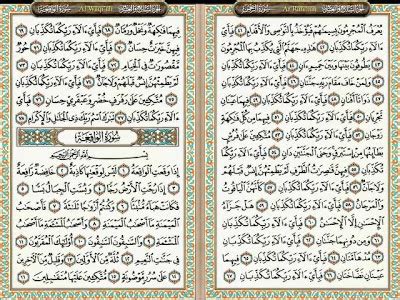 Ar Rahman
يُعْرَفُ الْمُجْرِمُونَ بِسِيمَٰهُمْ فَيُؤْخَذُ بِالنَّوَٰصِى وَالْأَقْدَامِ ٤١
فَبِأَىِّ ءَالَآءِ رَبِّكُمَا تُكَذِّبَانِ ٤٢ هَٰذِهِۦ جَهَنَّمُ الَّتِى يُكَذِّبُ بِهَا الْمُجْرِمُونَ ٤٣
يَطُوفُونَ بَيْنَهَا وَبَيْنَ حَمِيمٍ ءَانٍ ٤٤ فَبِأَىِّ ءَالَآءِ رَبِّكُمَا تُكَذِّبَانِ ٤٥
وَلِمَنْ خَافَ مَقَامَ رَبِّهِۦ جَنَّتَانِ ٤٦ فَبِأَىِّ ءَالَآءِ رَبِّكُمَا تُكَذِّبَانِ ٤٧
ذَوَاتَآ أَفْنَانٍ ٤٨ فَبِأَىِّ ءَالَآءِ رَبِّكُمَا تُكَذِّبَانِ ٤٩ فِيهِمَا عَيْنَانِ
تَجْرِيَانِ ٥٠ فَبِأَىِّ ءَالَآءِ رَبِّكُمَا تُكَذِّبَانِ ٥١ فِيهِمَا مِن كُلِّ فَٰكِهَةٍ
زَوْجَانِ ٥٢ فَبِأَىِّ ءَالَآءِ رَبِّكُمَا تُكَذِّبَانِ ٥٣ مُتَّكِـِٔينَ عَلَىٰ فُرُشٍۭ
بَطَآئِنُهَا مِنْ إِسْتَبْرَقٍ وَجَنَى الْجَنَّتَيْنِ دَانٍ ٥٤ فَبِأَىِّ ءَالَآءِ رَبِّكُمَا
تُكَذِّبَانِ ٥٥ فِيهِنَّ قَٰصِرَٰتُ الطَّرْفِ لَمْ يَطْمِثْهُنَّ إِنسٌ قَبْلَهُمْ
وَلَا جَآنٌّ ٥٦ فَبِأَىِّ ءَالَآءِ رَبِّكُمَا تُكَذِّبَانِ ٥٧ كَأَنَّهُنَّ الْيَاقُوتُ
وَالْمَرْجَانُ ٥٨ فَبِأَىِّ ءَالَآءِ رَبِّكُمَا تُكَذِّبَانِ ٥٩ هَلْ جَزَآءُ
الْإِحْسَٰنِ إِلَّا الْإِحْسَٰنُ ٦٠ فَبِأَىِّ ءَالَآءِ رَبِّكُمَا تُكَذِّبَانِ
٦١ وَمِن دُونِهِمَا جَنَّتَانِ ٦٢ فَبِأَىِّ ءَالَآءِ رَبِّكُمَا تُكَذِّبَانِ ٦٣
مُدْهَآمَّتَانِ ٦٤ فَبِأَىِّ ءَالَآءِ رَبِّكُمَا تُكَذِّبَانِ ٦٥ فِيهِمَا
عَيْنَانِ نَضَّاخَتَانِ ٦٦ فَبِأَىِّ ءَالَآءِ رَبِّكُمَا تُكَذِّبَانِ ٦٧
Al Waqi'ah
فِيهِمَا فَٰكِهَةٌ وَنَخْلٌ وَرُمَّانٌ ٦٨ فَبِأَىِّ ءَالَآءِ رَبِّكُمَا تُكَذِّبَانِ ٦٩
فِيهِنَّ خَيْرَٰتٌ حِسَانٌ ٧٠ فَبِأَىِّ ءَالَآءِ رَبِّكُمَا تُكَذِّبَانِ ٧١ حُورٌ
مَّقْصُورَٰتٌ فِى الْخِيَامِ ٧٢ فَبِأَىِّ ءَالَآءِ رَبِّكُمَا تُكَذِّبَانِ ٧٣
لَمْ يَطْمِثْهُنَّ إِنسٌ قَبْلَهُمْ وَلَا جَآنٌّ ٧٤ فَبِأَىِّ ءَالَآءِ رَبِّكُمَا
تُكَذِّبَانِ ٧٥ مُتَّكِـِٔينَ عَلَىٰ رَفْرَفٍ خُضْرٍ وَعَبْقَرِىٍّ حِسَانٍ ٧٦ فَبِأَىِّ
ءَالَآءِ رَبِّكُمَا تُكَذِّبَانِ ٧٧ تَبَٰرَكَ اسْمُ رَبِّكَ ذِى الْجَلَٰلِ وَالْإِكْرَامِ ٧٨
سُورَةُ الْوَاقِعَةِ
بِسْمِ اللَّهِ الرَّحْمَٰنِ الرَّحِيمِ
إِذَا وَقَعَتِ الْوَاقِعَةُ ١ لَيْسَ لِوَقْعَتِهَا كَاذِبَةٌ ٢ خَافِضَةٌ رَّافِعَةٌ
٣ إِذَا رُجَّتِ الْأَرْضُ رَجًّا ٤ وَبُسَّتِ الْجِبَالُ بَسًّا ٥
فَكَانَتْ هَبَآءً مُّنۢبَثًّا ٦ وَكُنتُمْ أَزْوَٰجًا ثَلَٰثَةً ٧ فَأَصْحَٰبُ
الْمَيْمَنَةِ مَآ أَصْحَٰبُ الْمَيْمَنَةِ ٨ وَأَصْحَٰبُ الْمَشْـَٔمَةِ مَآ أَصْحَٰبُ
الْمَشْـَٔمَةِ ٩ وَالسَّٰبِقُونَ السَّٰبِقُونَ ١٠ أُو۟لَٰٓئِكَ الْمُقَرَّبُونَ ١١
فِى جَنَّٰتِ النَّعِيمِ ١٢ ثُلَّةٌ مِّنَ الْأَوَّلِينَ ١٣ وَقَلِيلٌ مِّنَ الْءَاخِرِينَ
١٤ عَلَىٰ سُرُرٍ مَّوْضُونَةٍ ١٥ مُّتَّكِـِٔينَ عَلَيْهَا مُتَقَٰبِلِينَ ١٦